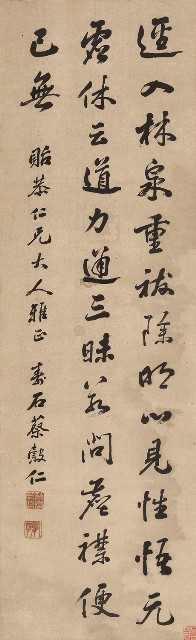 逕入林泉重祓除明心見性悟元
虛休云道力通三昧若問塵襟便
已無
貽恭仁兄大人雅正 壽石蔡穀仁